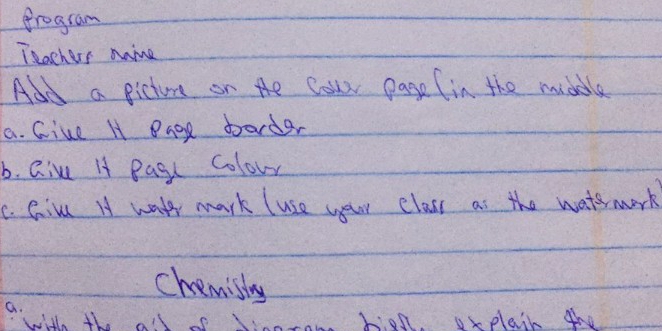 Program
Teachers name
Add a picture on the Cover page (in the middle
a. Give It Page border
b. Give It Page Colour
c. Give It water mark (use your Class as the watermark)
Chemistry
a.
With the aid of diagram briefly explain the